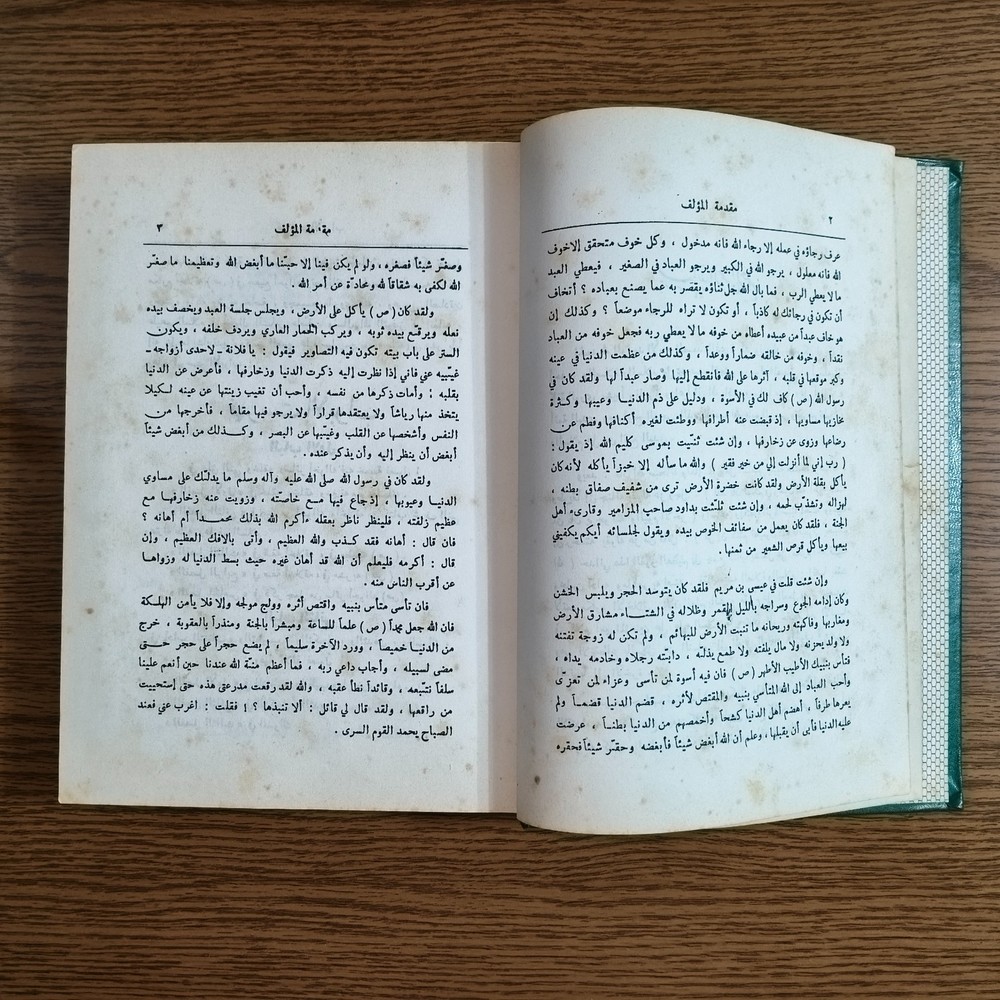 مقدمة المؤلف
٢
عرف رجاؤه في عمله إلا رجاء الله فانه مدخول ، وكل خوف متحقق إلاخوف
الله فانه معلول ، يرجو الله في الكبير ويرجو العباد في الصغير ، فيعطي العبد
ما لا يعطي الرب ، فما بال الله جل ثناؤه يقصر به عما يصنع بعباده ؟ أتخاف
أن تكون في رجائك له كاذباً ، أو تكون لا تراه للرجاء موضعاً ؟ وكذلك إن
هو خاف عبداً من عبيده أعطاه من خوفه ما لا يعطي ربه فجعل خوفه من العباد
نقداً ، وخوفه من خالقه ضماراً ووعداً ، وكذلك من عظمت الدنيا في عينه
وكبر موقعها في قلبه ، آثرها على الله فانقطع إليها وصار عبداً لها ولقد كان في
رسول الله ( ص ) كاف لك في الأسوة ، ودليل على ذم الدنيا وعيبها وكثرة
مخازيها مساويها ، إذ قبضت عنه أطرافها ووطئت لغيره أكنافها وفطم عن
رضاعها وزوى عن زخارفها ، وإن شئت ثنّيت بموسى كليم الله إذ يقول :
( رب إني لما أنزلت إلي من خير فقير ) والله ما سأله إلا خبزاً يأكله لأنه كان
يأكل بقلة الأرض ولقد كانت خضرة الأرض ترى من شفيف صفاق بطنه ،
لهزاله وتشذّب لحمه ، وإن شئت ثلّثت بداود صاحب المزامير وقارىء أهل
الجنة ، فلقد كان يعمل من سفائف الخوص بيده ويقول لجلسائه أيكم يكفيني
بيعها ويأكل قرص الشعير من ثمنها .
وإن شئت قلت في عيسى بن مريم فلقد كان يتوسد الحجر ويلبس الخشن
وكان إدامه الجوع وسراجه بالليل القمر وظلاله في الشتاء مشارق الأرض
ومغاربها وفاكهته وريحانه ما تنبت الأرض للبهائم ، ولم تكن له زوجة تفتنه
ولا ولد يحزنه ولا مال يلفته ولا طمع يذلّه ، دابته رجلاه وخادمه يداه ،
فتأس بنبيك الأطيب الأطهر ( ص ) فان فيه أسوة لمن تأسى وعزاء لمن تعزّى
وأحب العباد إلى الله المتأسي بنبيه والمقتص لأثره ، قضم الدنيا قضماً ولم
يعرها طرفاً ، أهضم أهل الدنيا كشحاً وأخمصهم من الدنيا بطناً ، عرضت
عليه الدنيا فأبى أن يقبلها ، وعلم أن الله أبغض شيئاً فأبغضه وحقّر شيئاً فحقره
مقدمة المؤلف
٣
وصغّر شيئاً فصغره ، ولو لم يكن فينا إلا حبّنا ما أبغض الله وتعظيمنا ما صغّر
الله لكفى به شقاقاً لله ومحادّة عن أمر الله .
ولقد كان (ص) يأكل على الأرض ، ويجلس جلسة العبد ويخصف بيده
نعله ويرقّع بيده ثوبه ، ويركب الحمار العاري ويردف خلفه ، ويكون
الستر على باب بيته تكون فيه التصاوير فيقول : يا فلانة ـ لاحدى أزواجه ـ
غيّبيه عني فاني إذا نظرت إليه ذكرت الدنيا وزخارفها ، فأعرض عن الدنيا
بقلبه ؛ وأمات ذكرها من نفسه ، وأحب أن تغيب زينتها عن عينه لكيلا
يتخذ منها رياشاً ولا يعتقدها قراراً ولا يرجو فيها مقاماً ، فأخرجها من
النفس وأشخصها عن القلب وغيّبها عن البصر ، وكذلك من أبغض شيئاً
أبغض أن ينظر إليه وأن يذكر عنده .
ولقد كان في رسول الله صلى الله عليه وآله وسلم ما يدلّك على مساوي
الدنيا وعيوبها ، إذجاع فيها مع خاصّته ، وزويت عنه زخارفها مع
عظيم زلفته ، فلينظر ناظر بعقله ءأكرم الله بذلك محمداً أم أهانه ؟
فان قال : أهانه فقد كذب والله العظيم ، وأتى بالافك العظيم ، وإن
قال : أكرمه فليعلم أن الله قد أهان غيره حيث بسط الدنيا له وزواها
عن أقرب الناس منه .
فان تأسى متأس بنبيه واقتص أثره وولج مولجه وإلا فلا يأمن الهلكة
فان الله جعل محمداً (ص) علماً للساعة ومبشراً بالجنة ومنذراً بالعقوبة ، خرج
من الدنيا خميصاً ، وورد الآخرة سليماً ، لم يضع حجراً على حجر حتى
مضى لسبيله ، وأجاب داعي ربه ، فما أعظم منّة الله عندنا حين أنعم علينا
سلفاً نتبعه ، وقائداً نطأ عقبه ، والله لقد رقعت مدرعتي هذه حتى إستحييت
من راقعها ، ولقد قال لي قائل : ألا تنبذها ؟ ! فقلت : اغرب عني فعند
الصباح يحمد القوم السرى .